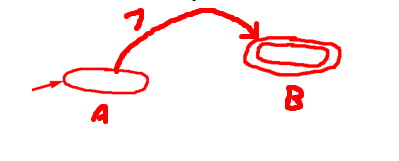 7
A
B